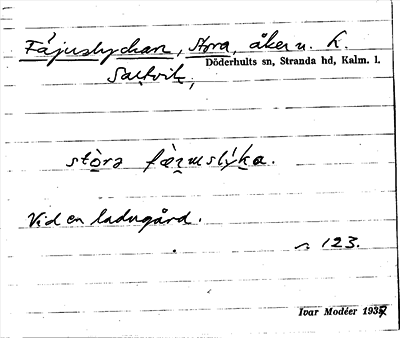 Fäjuslyckan, Stora, åker u. h.
Saltvik, Döderhults sn, Stranda hd, Kalm. l.
stòra fæ̀ɪuslýka.
Vid en ladugård.
123.
Ivar Modéer 1937